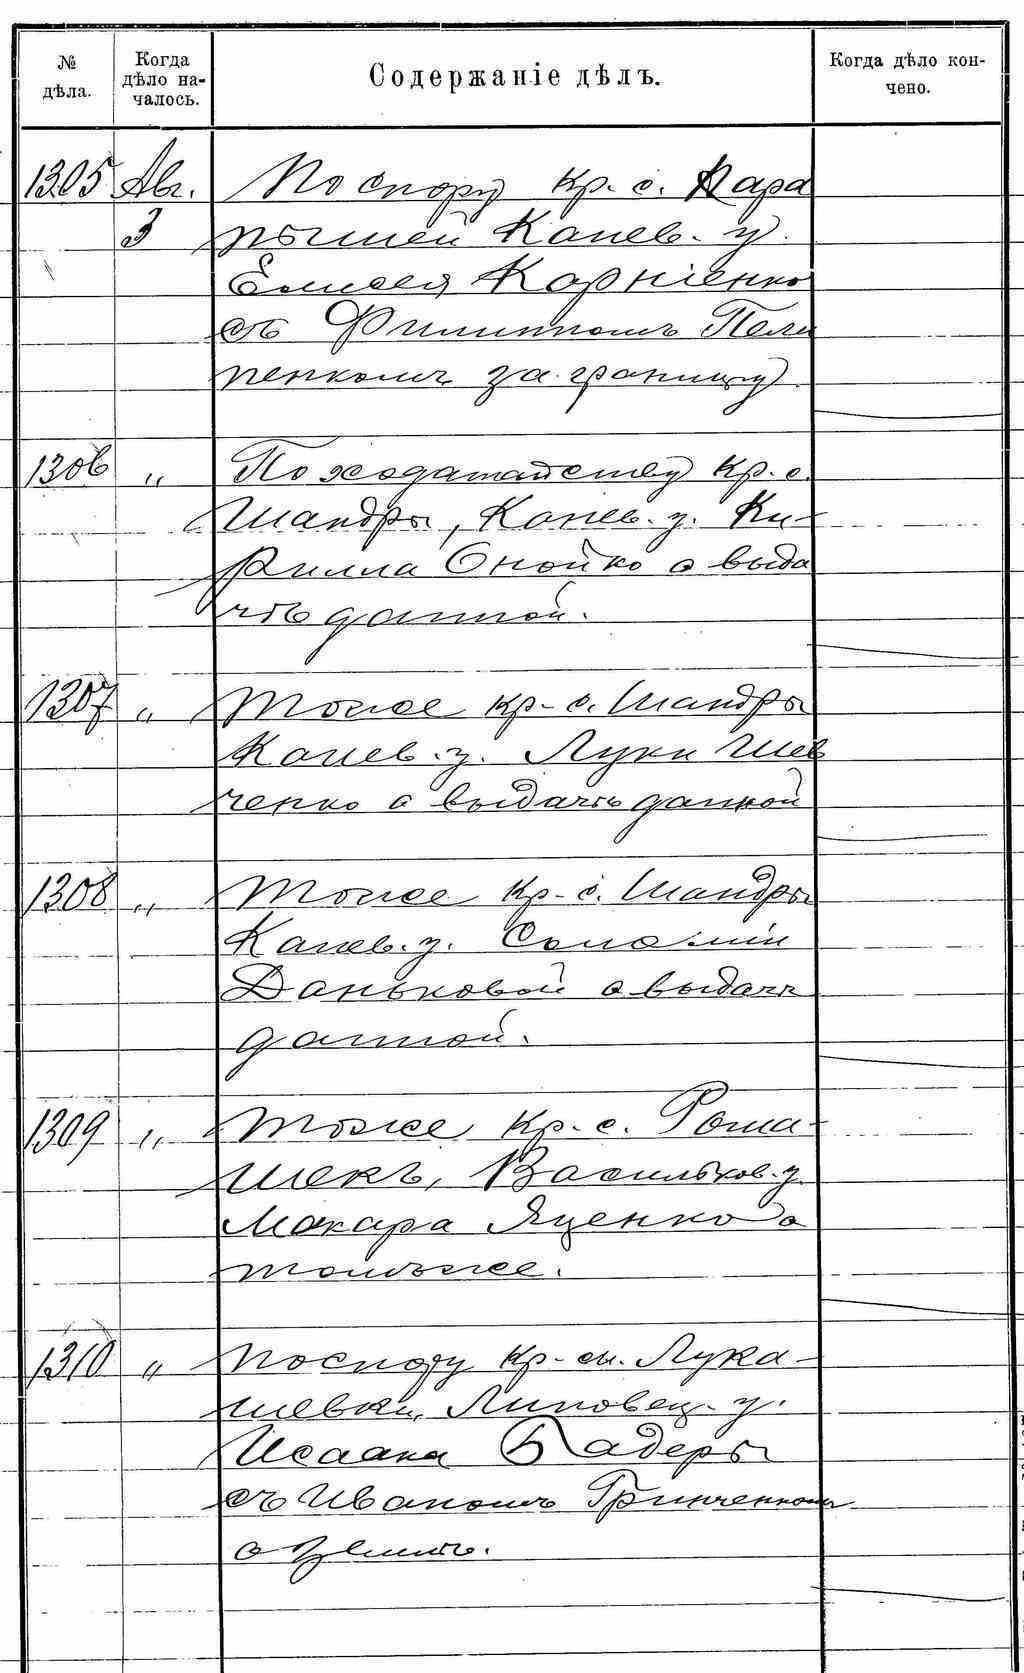 № дѣла.
Когда дѣло началось.
Содержаніе дѣлъ.
Когда дѣло кончено.
1305 Авг. По спору кр. с. Кара
3 пышей Канев. у.
Елисея Карніенко
съ Филиппомъ Пили
пенкомъ за границу.
1306 „ По ходатайству кр. с.
Шандры, Канев. у. Ки-
рилла Онойко о выда
чѣ данной.
1307 „ Тоже кр-с. Шандры
Канев. у. Луки Шев
ченко о выдачѣ данной
1308 „ Тоже кр-с. Шандры
Канев. у. Соломіи
Даньковой о выдачѣ
данной.
1309 „ Тоже кр. с. Рома-
шекъ, Васильков. у.
Макара Яценко о
томъже.
1310 „ По спору кр-см. Лука-
шевки, Липовец. у.
Исаака Бадеры
съ Иваномъ Гринченкомъ
о землѣ.